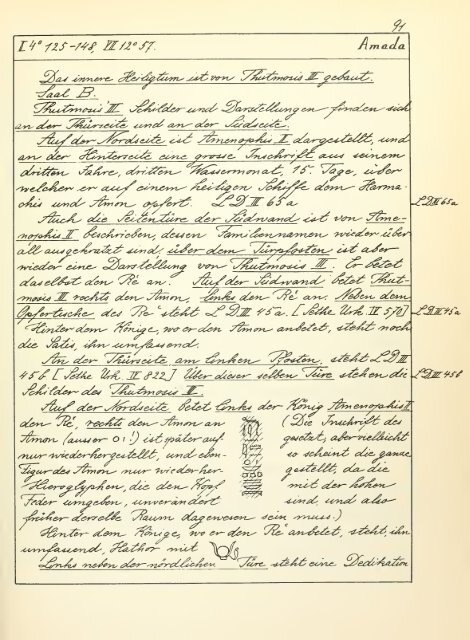 91
I 4° 125-148, VI 12° 57. Amada
Das innere Heiligtum ist von Thutmosis III gebaut.
Saal B.
Thutmosis III Schilder und Darstellungen finden sich
an der Thürseite und an der Südseite.
Auf der Nordseite ist Amenophis II dargestellt, und
an der Hinterseite eine grosse Inschrift aus seinem
dritten Jahre, dritten Wassermonat, 15. Tage, über
welcher er auf einem heiligen Schiffe dem Harma-
chis und Amon opfert. LD III 65a
LD III 65a
Auch die Seitentüre der Südwand ist von Ame-
nophis II beschrieben, dessen Familiennamen wieder über-
all ausgekratzt sind, über dem Türpfosten ist aber
wieder eine Darstellung von Thutmosis III. Er betet
daselbst den Re' an. Auf der Südwand betet Thut-
mosis III rechts den Amon, links den Re' an. Neben dem
Opfertische des Re' steht LD III 45a. [Sethe Urk. IV 570]
LD III 45a
Hinter dem Könige, wo er den Amon anbetet, steht noch
die Satis, ihn umfassend.
An der Thürseite am linken Pfosten, steht LD III
45b [Sethe Urk. IV 822] Über dieser selben Türe stehen die
LD III 45b
Schilder des Thutmosis III.
Auf der Nordseite, betet links der König Amenophis II
den Re', rechts den Amon an (Die Inschrift des
Amon (ausser ) ist später auf- gesetzt, aber vielleicht
nur wiederhergestellt, und eben- so scheint die ganze
Figur des Amon nur wieder her- gestellt, da die
Hieroglyphen, die den Kopf mit der hohen
Feder umgeben, unverändert sind und also
früher derselbe Raum dagewesen sein muss.)
Hinter dem Könige, wo er den Re' anbetet, steht, ihn
umfassend, Hathor mit
Links neben der nördlichen Türe steht eine Dedikation